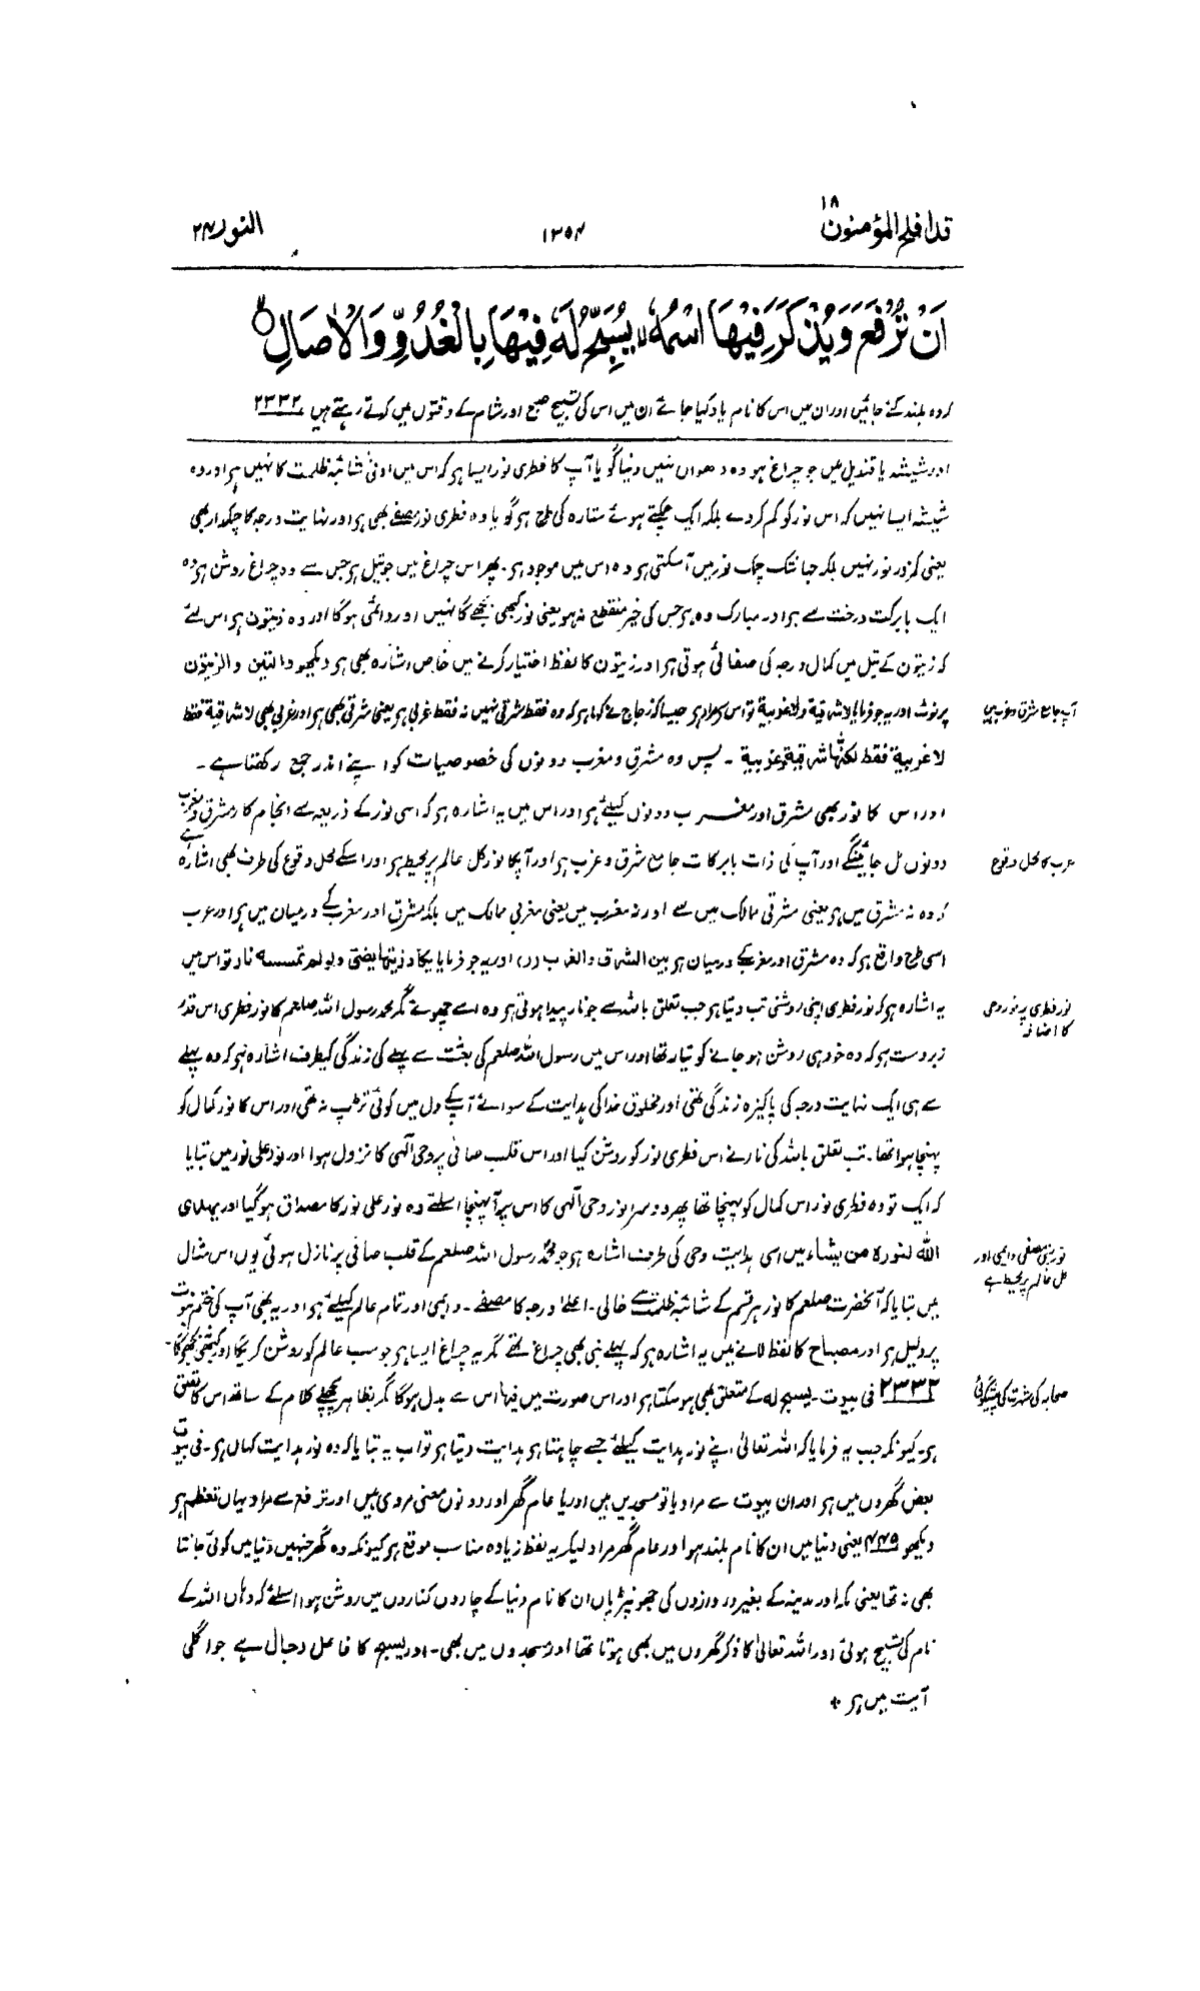 قد افلح المؤمنون ۱۸
۱۳۵۴
النور ۲۴
اَنْ تُرْفَعَ وَيُذْكَرَ فِيْهَا اسْمُهٗ ۙ يُسَبِّحُ لَهٗ فِيْهَا بِالْغُدُوِّ وَالْاٰصَالِ ۝
کہ وہ بلند کئے جائیں اور ان میں اس کا نام یاد کیا جائے ان میں اس کی تسبیح صبح اور شام کے وقتوں میں کرتے رہتے ہیں ۲۳۳۲
اور شیشہ یا قندیل میں جو چراغ ہو وہ دھواں نہیں دیتا گویا آپ کا فطری نور ایسا ہے کہ اس میں ادنیٰ شائبہ ظلمت کا نہیں ہے اور وہ
شیشہ ایسا نہیں کہ اس نور کو کم کر دے بلکہ ایک چمکتے ہوئے ستارہ کی طرح ہے گویا وہ فطری نور مصفے بھی ہے اور نہایت درجہ کا چمکدار بھی
یعنی کمزور نور نہیں بلکہ جہانتک چمک نور میں آسکتی ہے وہ اس میں موجود ہے۔ پھر اس چراغ میں جو تیل ہے جس سے وہ چراغ روشن ہے وہ
ایک بابرکت درخت سے ہے اور مبارک وہ ہے جس کی خیر منقطع نہ ہو یعنی نور کبھی بجھے گا نہیں اور دائمی ہوگا اور وہ زیتون ہے اس لئے
کہ زیتون کے تیل میں کمال درجہ کی صفائی ہوتی ہے اور زیتون کا لفظ اختیار کرنے میں خاص اشارہ بھی ہے دیکھو والتین والزیتون
پر نوٹ اور یہ جو فرمایا لا شرقیة ولا غربیة تو اس سے مراد ہے جیسا کہ زجاج نے کہا ہے کہ وہ فقط شرقی نہیں نہ فقط غربی ہے یعنی شرقی بھی ہے اور غربی بھی لا شرقیة فقط
آپ جامع مشرق و مغرب ہیں
لا غربیة فقط لکنھا شرقیة وغربیة۔ پس وہ مشرق و مغرب دونوں کی خصوصیات کو اپنے اندر جمع رکھتا ہے۔
اور اس کا نور بھی مشرق اور مغرب دونوں کیلئے ہے اور اس میں یہ اشارہ ہے کہ اسی نور کے ذریعہ سے انجام کار مشرق و مغرب
دونوں مل جائینگے اور آپ کی ذات بابرکات جامع شرق و غرب ہے اور آپکا نور کل عالم پر محیط ہے اور اسکے محل وقوع کی طرف بھی اشارہ ہے
عرب کا محل وقوع
کہ وہ نہ مشرق میں ہے یعنی مشرقی ممالک میں سے اور نہ مغرب میں یعنی مغربی ممالک میں بلکہ مشرق اور مغرب کے درمیان میں ہے اور عرب
اسی طرح واقع ہے کہ وہ مشرق اور مغرب کے درمیان ہے بین الشرق والغرب (ر) اور یہ جو فرمایا یکاد زیتھا یضئی ولو لم تمسسه نار تو اس میں
یہ اشارہ ہے کہ نور فطری اپنی روشنی تب دیتا ہے جب تعلق باللہ سے جو نار پیدا ہوتی ہے وہ اسے چھوئے مگر محمد رسول اللہ صلعم کا نور فطری اس قدر
نور فطری پر نور وحی
کا اضافہ
زبردست ہے کہ وہ خود ہی روشن ہو جانے کو تیار تھا اور اس میں رسول اللہ صلعم کی بعثت سے پہلے کی زندگی کیطرف اشارہ ہے کہ وہ پہلے
سے ہی ایک نہایت درجہ کی پاکیزہ زندگی تھی اور مخلوق خدا کی ہدایت کے سوائے آپ کے دل میں کوئی تڑپ نہ تھی اور اس کا نور کمال کو
پہنچا ہوا تھا۔ تب تعلق باللہ کی نار نے اس فطری نور کو روشن کیا اور اس قلب صافی پر وحی الٰہی کا نزول ہوا اور نور علی نور میں بتایا
کہ ایک تو وہ فطری نور اس کمال کو پہنچا تھا پھر دوسرا نور وحی الٰہی کا اس پر آپہنچا اسلئے وہ نور علی نور کا مصداق ہوگیا اور یھدی
اللہ لنوره من یشاء میں اسی ہدایت وحی کی طرف اشارہ ہے جو محمد رسول اللہ صلعم کے قلب صافی پر نازل ہوئی یوں اس مثال
نور نبی مصفی دائمی اور
کل عالم پر محیط ہے
میں بتایا کہ آنحضرت صلعم کا نور ہر قسم کے شائبہ ظلمت سے خالی۔ اعلےٰ درجہ کا مصفے۔ دائمی اور تمام عالم کیلئے ہے اور یہ بھی آپ کی ختم نبوت
پر دلیل ہے اور مصباح کا لفظ لانے میں یہ اشارہ ہے کہ پہلے نبی بھی چراغ تھے مگر یہ چراغ ایسا ہے جو سب عالم کو روشن کریگا اور کبھی نہ بجھیگا۔
۲۳۳۲ فی بیوت۔ یسبح له کے متعلق بھی ہو سکتا ہے اور اس صورت میں فیھا اس سے بدل ہوگا مگر بظاہر پچھلے کلام کے ساتھ اس کا تعلق
صحابہ کی شہرت کی پیشگوئی
ہے۔ کیونکہ جب یہ فرمایا کہ اللہ تعالیٰ اپنے نور ہدایت کیلئے جسے چاہتا ہے ہدایت دیتا ہے تو اب یہ بتایا کہ وہ نور ہدایت کہاں ہے۔ فی بیوت
بعض گھروں میں ہے اور ان بیوت سے مراد یا تو مسجدیں ہیں اور یا عام گھر اور دونوں معنی مروی ہیں اور ترفع سے مراد یہاں تعظیم ہے
دیکھو ۴۴۹ یعنی دنیا میں ان کا نام بلند ہو اور عام گھر مراد لیکر یہ لفظ زیادہ مناسب موقع ہے کیونکہ وہ گھر جنہیں دنیا میں کوئی جانتا
بھی نہ تھا یعنی مکہ اور مدینہ کے بغیر دروازوں کی جھونپڑیاں ان کا نام دنیا کے چاروں کناروں میں روشن ہوا اسلئے کہ وہاں اللہ کے
نام کی تسبیح ہوئی اور اللہ تعالیٰ کا ذکر گھروں میں بھی ہوتا تھا اور مسجدوں میں بھی۔ اور یسبح کا فاعل رجال ہے جو اگلی
آیت میں ہے +